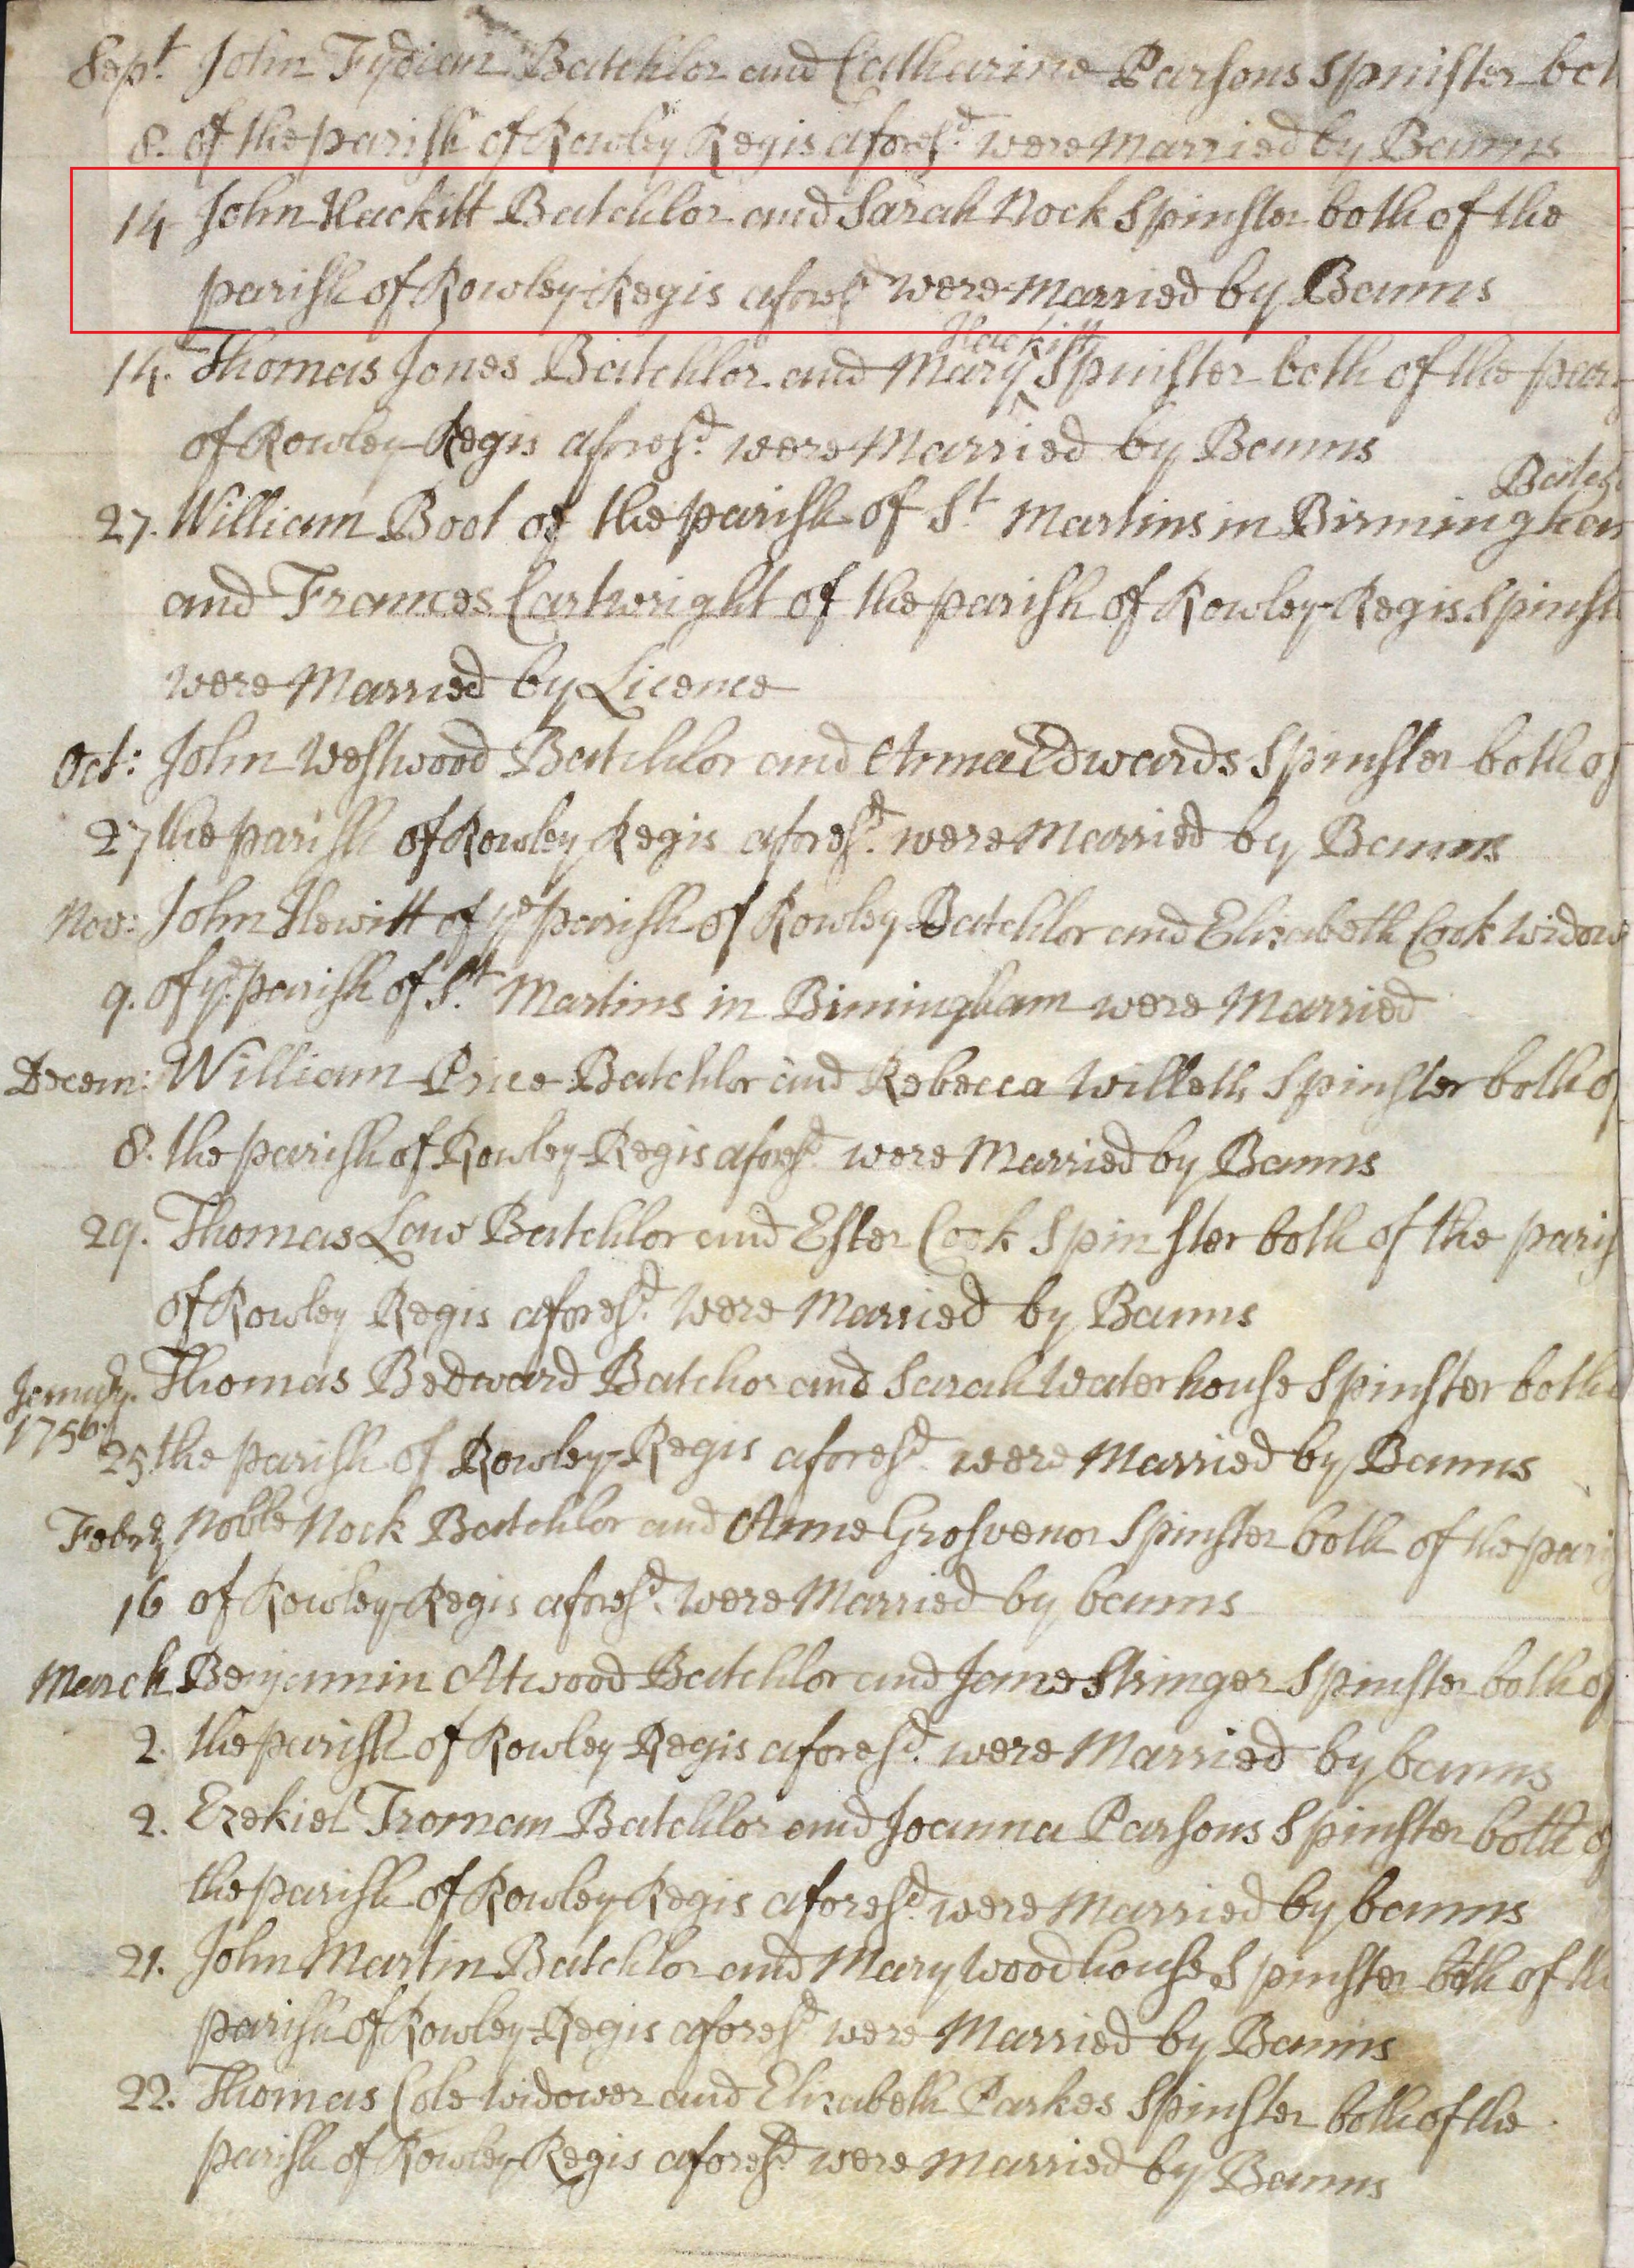 Sept. John Tydian Batchlor and Catharine Parsons Spinister bot
8. of the parish of Rowley Regis aforesd. were Married by Banns
14 John Hackitt Batchlor and Sarah Nock Spinster both of the
parish of Rowley-Regis aforesd were Married by Banns
Hackitt
14. Thomas Jones Batchlor and Mary ^ Spinister both of the par
of Rowley-Regis aforesd. were Married by Banns
Batch
27. William Boot of the parish of St Martins in Birmingham
and Frances Cartwright of the parish of Rowley-Regis Spinst
were Married by Licence
Oct: John Westwood Batchlor and Anna Edwards Spinster both of
27 the parish of Rowley Regis aforesd. were Married by Banns
Nov: John Hewitt of ye parish of Rowley Batchlor and Elizabeth Cook Widow
9. of ye parish of St. Martins in Bimingham were Married
Decem: William Price Batchlor and Rebecca Willetts Spinster both of
8. the parish of Rowley-Regis aforesd were Married by Banns
29. Thomas Law Batchlor and Ester Cook Spinster both of the paris
of Rowley Regis aforesd. were Married by Banns
Januay. Thomas Bedward Batchor and Sarah Waterhouse Spinster both o
1756. 25 the parish of Rowley-Regis aforesd were Married by Banns
Febry Noble Nock Batchlor and Anne Grosvenor Spinster both of the pari
16 of Rowley-Regis aforesd. were Married by banns
March Benjamin Atwood Batchlor and Jane Stringer Spinster both of
2. the parish of Rowley-Regis aforesd. were Married by banns
2. Ezekiel Troman Batchlor and Joanna Parsons Spinster both o
the parish of Rowley-Regis aforesd. were Married by banns
21. John Martin Batchlor and Mary Woodhouse Spinster both of th
parish of Rowley-Regis aforesd were Married by Banns
22. Thomas Cole Widower and Elizabeth Parkes Spinster both of the
parish of Rowley-Regis aforesd were Married by Banns